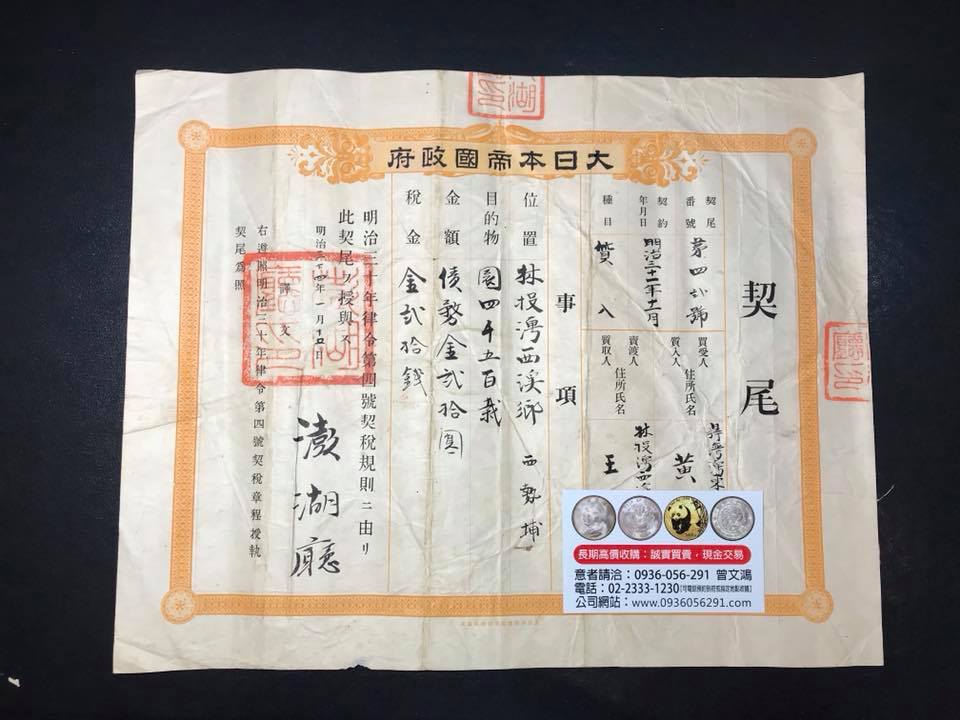 大日本帝國政府
契尾
契尾番號
第四弐號
契約年月日
明治三十一年十一月
種目
質入
買受人
質入人
住所氏名
黃
賣渡人
質取人
住所氏名
林投灣西
王
事項
位置
林投灣西溪鄉 西勢埔
目的物
園四千五百栽
金額
債務金弐拾圓
稅金
金弐拾錢
明治三十年律令第四號契稅規則ニ由リ
此契尾ヲ授與ス
明治三十四年一月十五日
澎湖廳
譯文
右遵照明治三十年律令第四號契稅章程授執
契尾為照
長期高價收購：誠實買賣，現金交易
意者請洽：0936-056-291 曾文鴻
電話：02-2333-1230
公司網站：www.0936056291.com